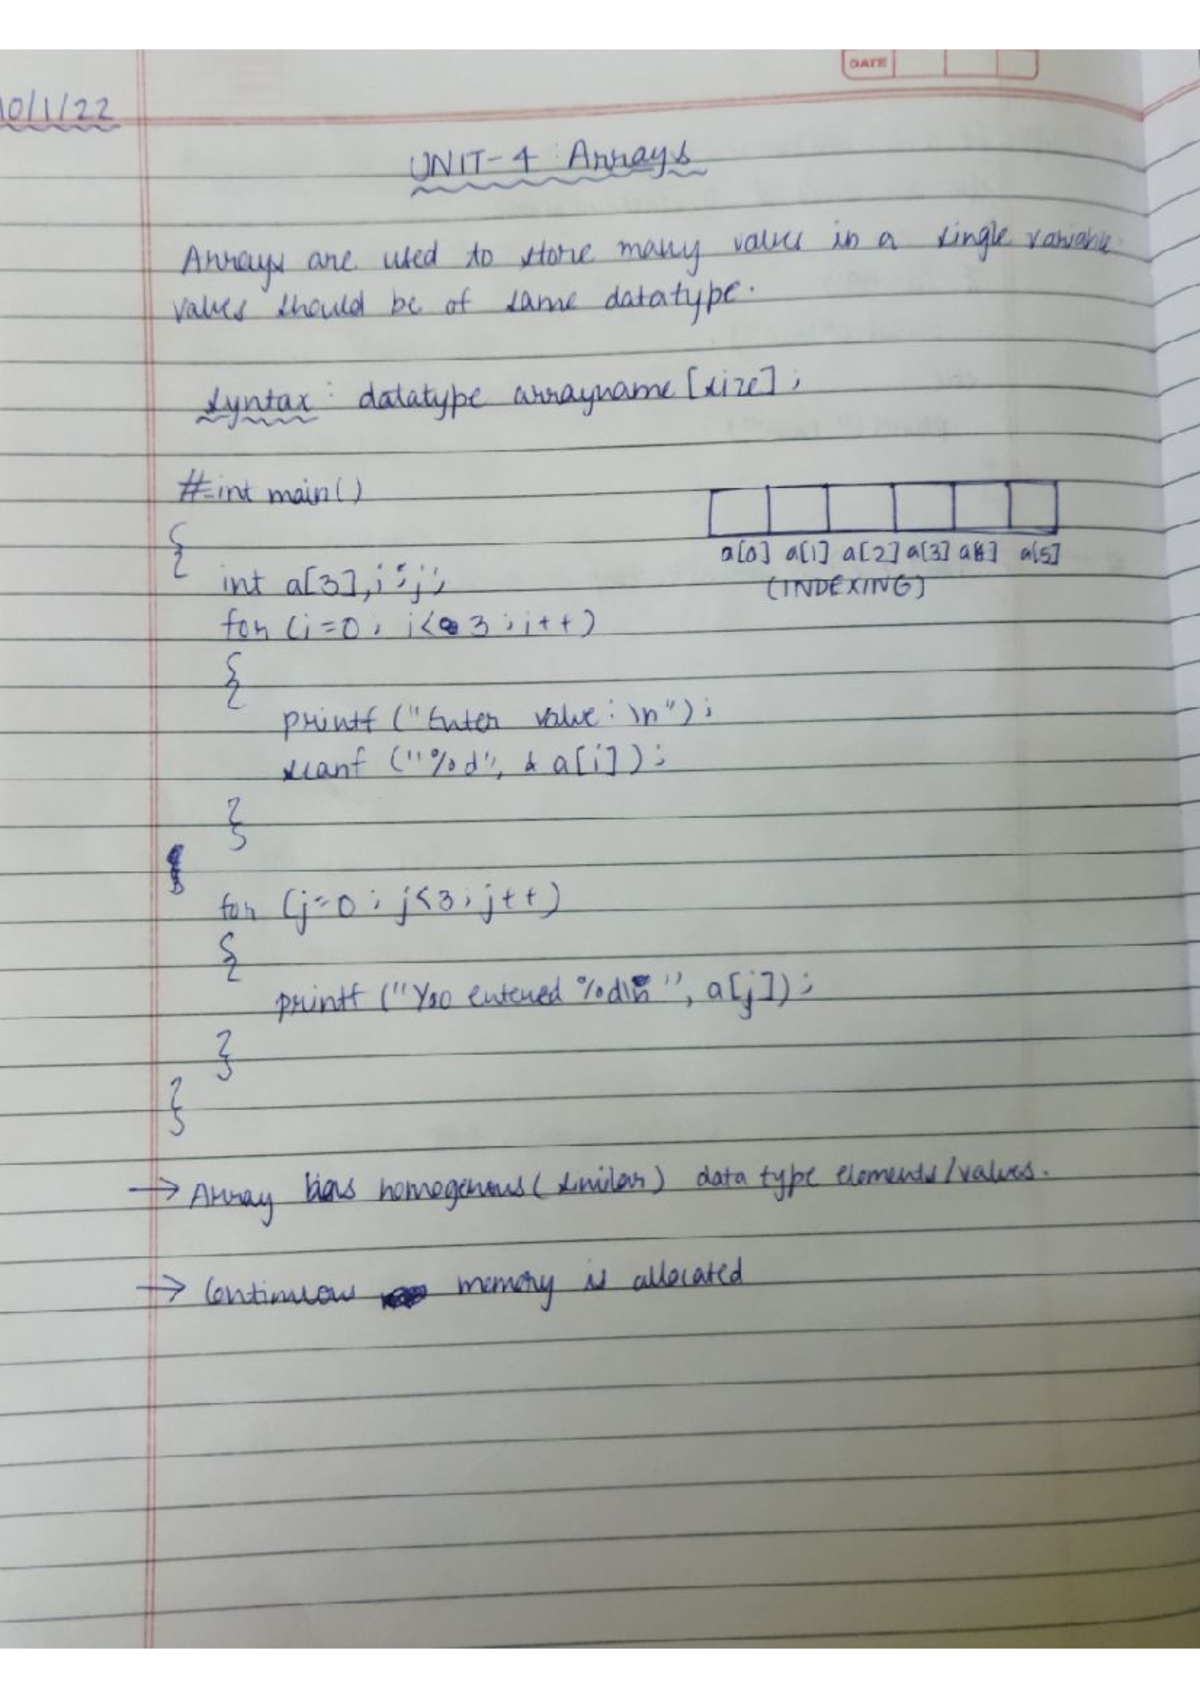 DATE
10/1/22
UNIT-4 : Arrays
Arrays are used to store many values in a single variable.
values should be of same datatype.
syntax : datatype arrayname [size] ;
#int main()
{
a[0] a[1] a[2] a[3] a[4] a[5]
(INDEXING)
int a[3], i, j;
for (i=0; i<3; i++)
{
printf ("Enter value: \n");
scanf ("%d", & a[i]);
}
for (j=0; j<3; j++)
{
printf ("You entered %d\n", a[j]);
}
}
→ Array has homogenous (similar) data type elements/values.
→ Continuous memory is allocated